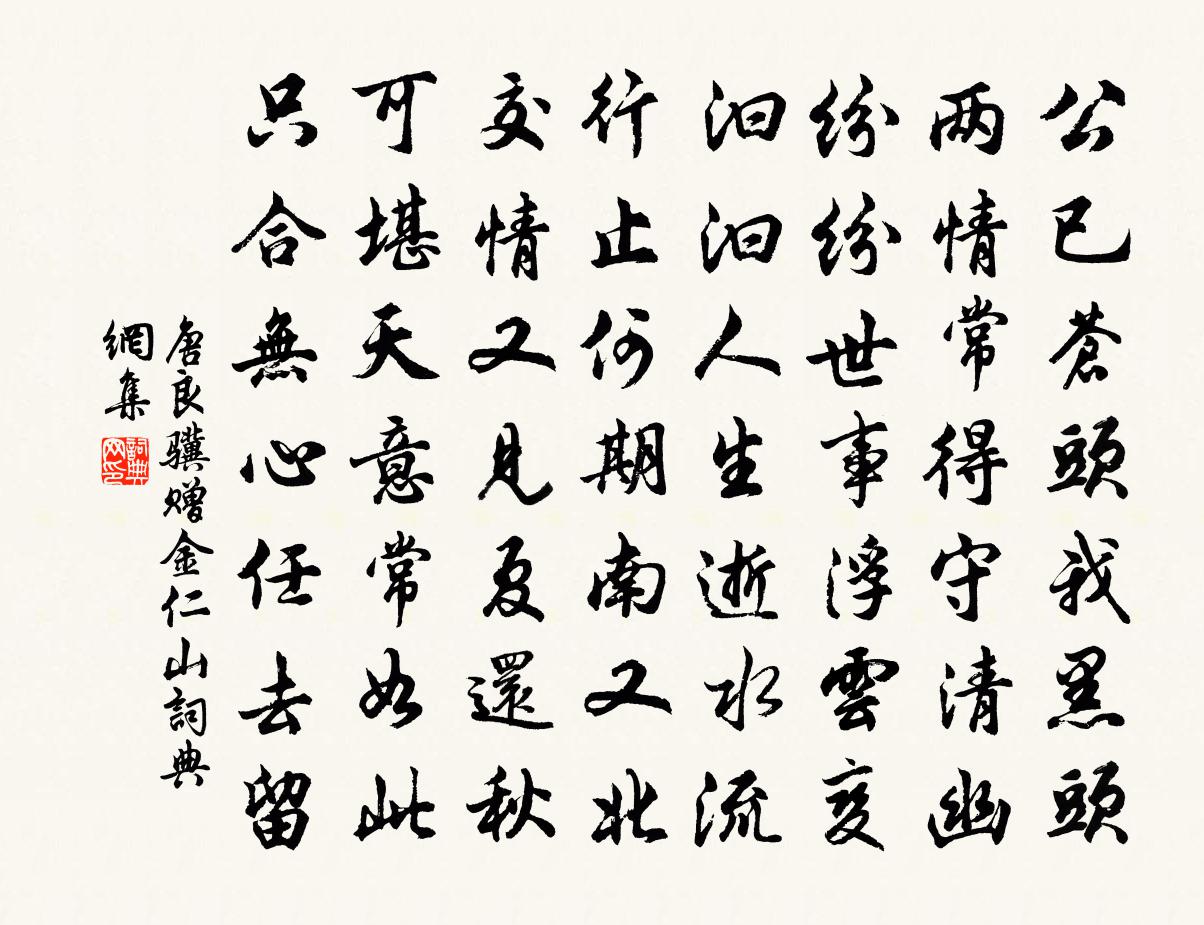 公已蒼頭我黑頭
两情常得守清幽
紛紛世事浮雲变
汩汩人生逝水流
行止何期南又北
交情又見夏還秋
可堪天意常如此
只合無心任去留
唐良驥赠金仁山詞典
網集
詞典网印